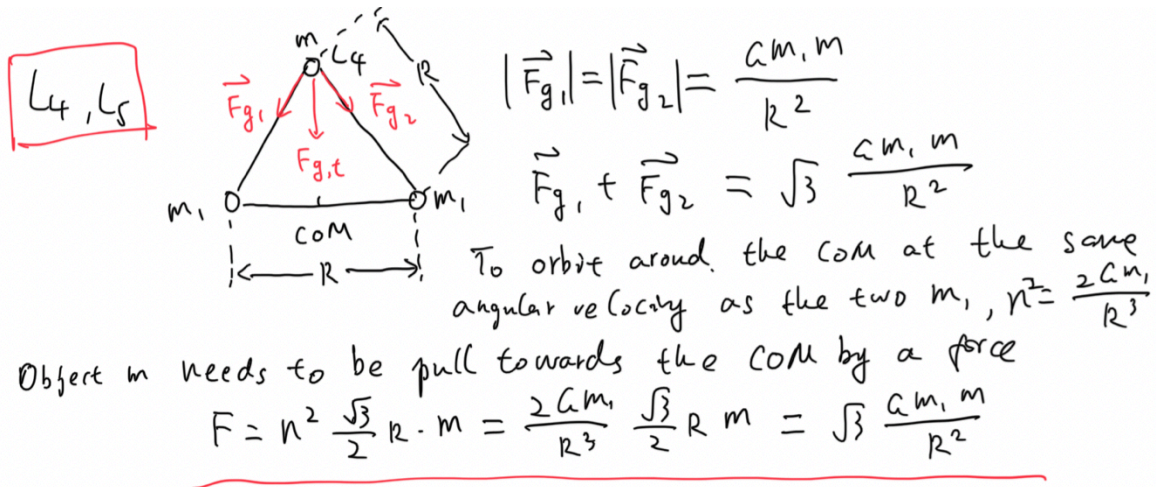 L4, L5
m
L4
R
Fg1
Fg2
Fg,t
m1
m1
COM
R
|Fg1| = |Fg2| = Gm1m / R²
Fg1 + Fg2 = √3 Gm1m / R²
To orbit aroud. the COM at the same
angular velocity as the two m1, n² = 2Gm1 / R³
Object m needs to be pull towards the COM by a force
F = n² √3/2 R · m = 2Gm1 / R³ √3/2 R m = √3 Gm1m / R²